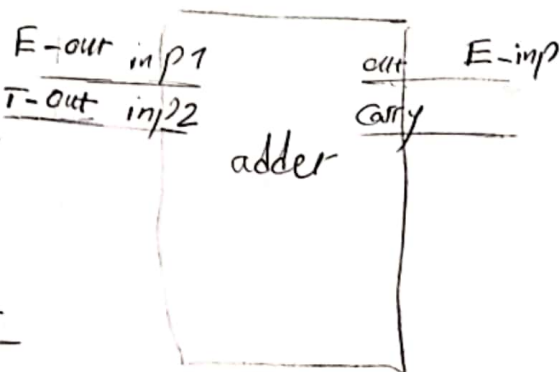 E-out inp1 out E-inp
T-out inp2 Carry
adder